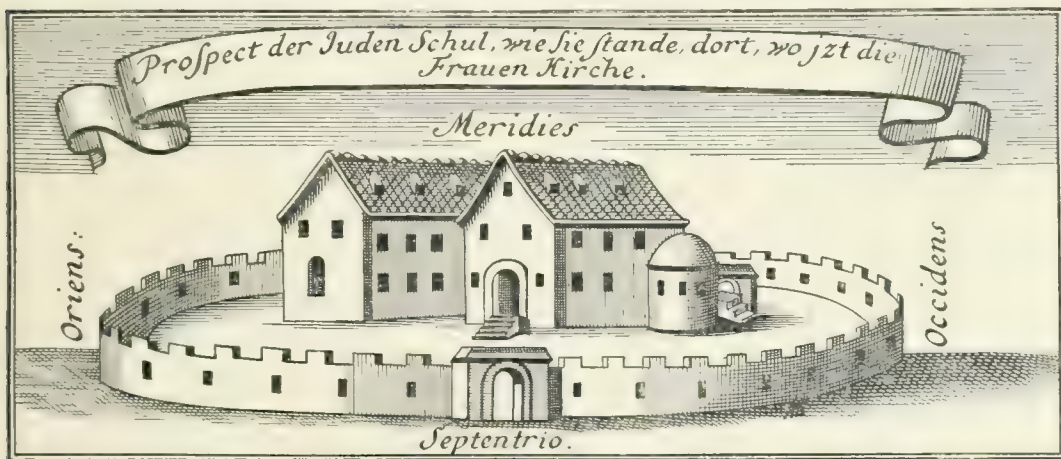 Proſpect der Juden Schul, wie Sie ſtande, dort, wo jzt die
Frauen Kirche.
Meridies
Oriens:
Occidens
Septentrio.